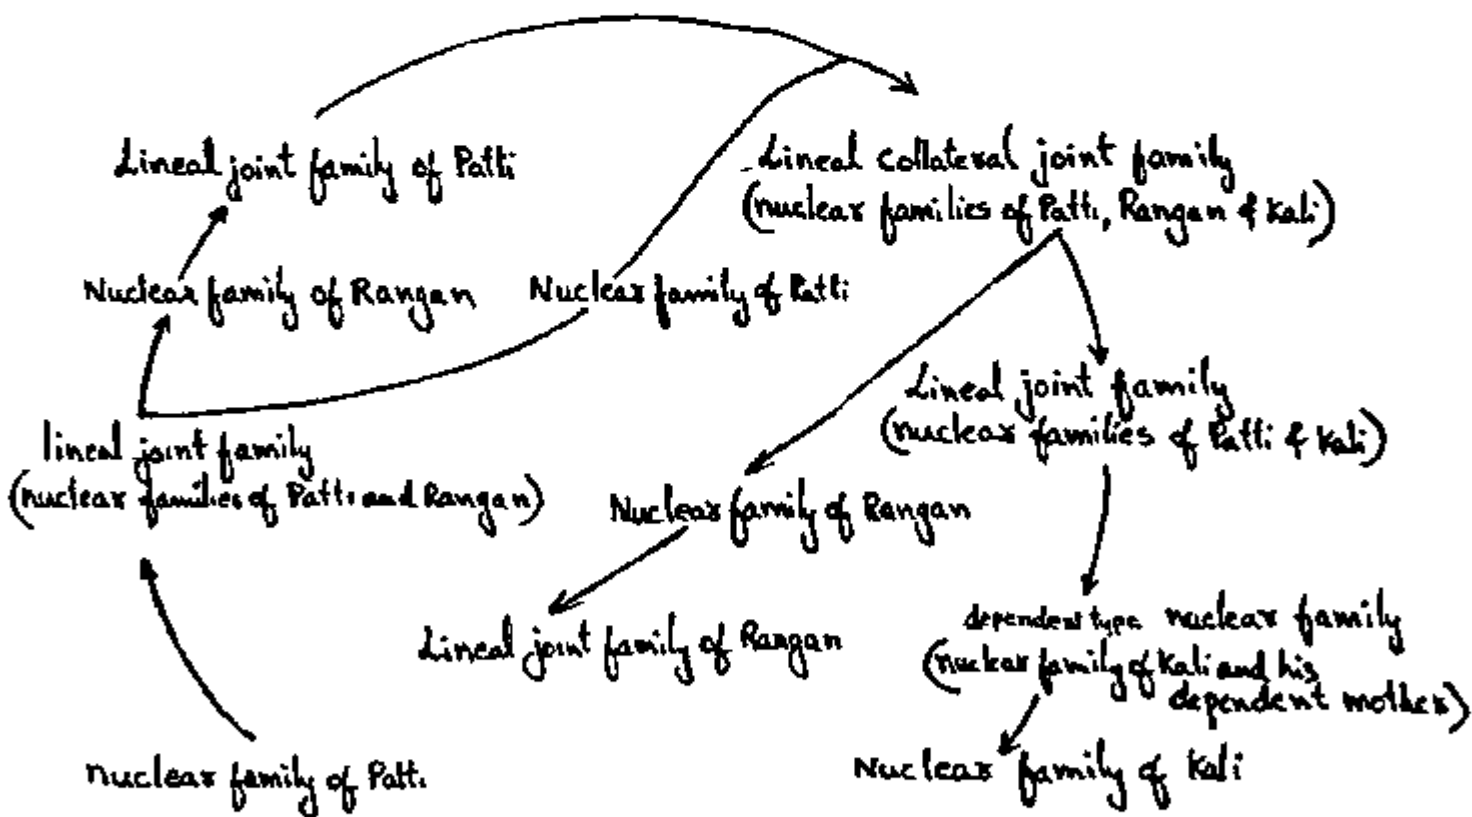 Lineal joint family of Patti
Lineal collateral joint family
(nuclear families of Patti, Rangan & Kali)
Nuclear family of Rangan
Nuclear family of Patti
Lineal joint family
(nuclear families of Patti & Kali)
lineal joint family
(nuclear families of Patti and Rangan)
Nuclear family of Rangan
Lineal joint family of Rangan
dependent type nuclear family
(nuclear family of Kali and his
dependent mother)
nuclear family of Patti
Nuclear family of Kali